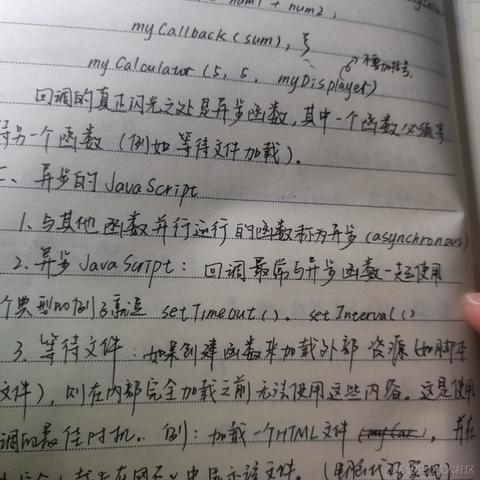 num1 + num2,
myCallback(sum), }
不要加括号.
myCalculator(5, 5, myDisplayer)
回调的真正闪光之处是异步函数,其中一个函数必须等
待另一个函数(例如等待文件加载)。
二、异步的 JavaScript
1、与其他函数并行运行的函数称为异步(asynchronous)
2、异步 JavaScript: 回调最常与异步函数一起使用
个典型的例子就是 setTimeout()、setInterval()
3、等待文件:如果创建函数来加载外部资源(如脚本
文件),则在内部完全加载之前无法使用这些内容。这是使用
调的最佳时机.. 例:加载一个HTML文件(myCar),并在
中显示该文件。